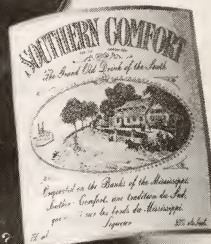 SOUTHERN COMFORT
The Grand Old Drink of the South
on the Banks of the Mississippi
Comfort, une tradition du Sud,
sur les bords du Mississippi.
Liqueur